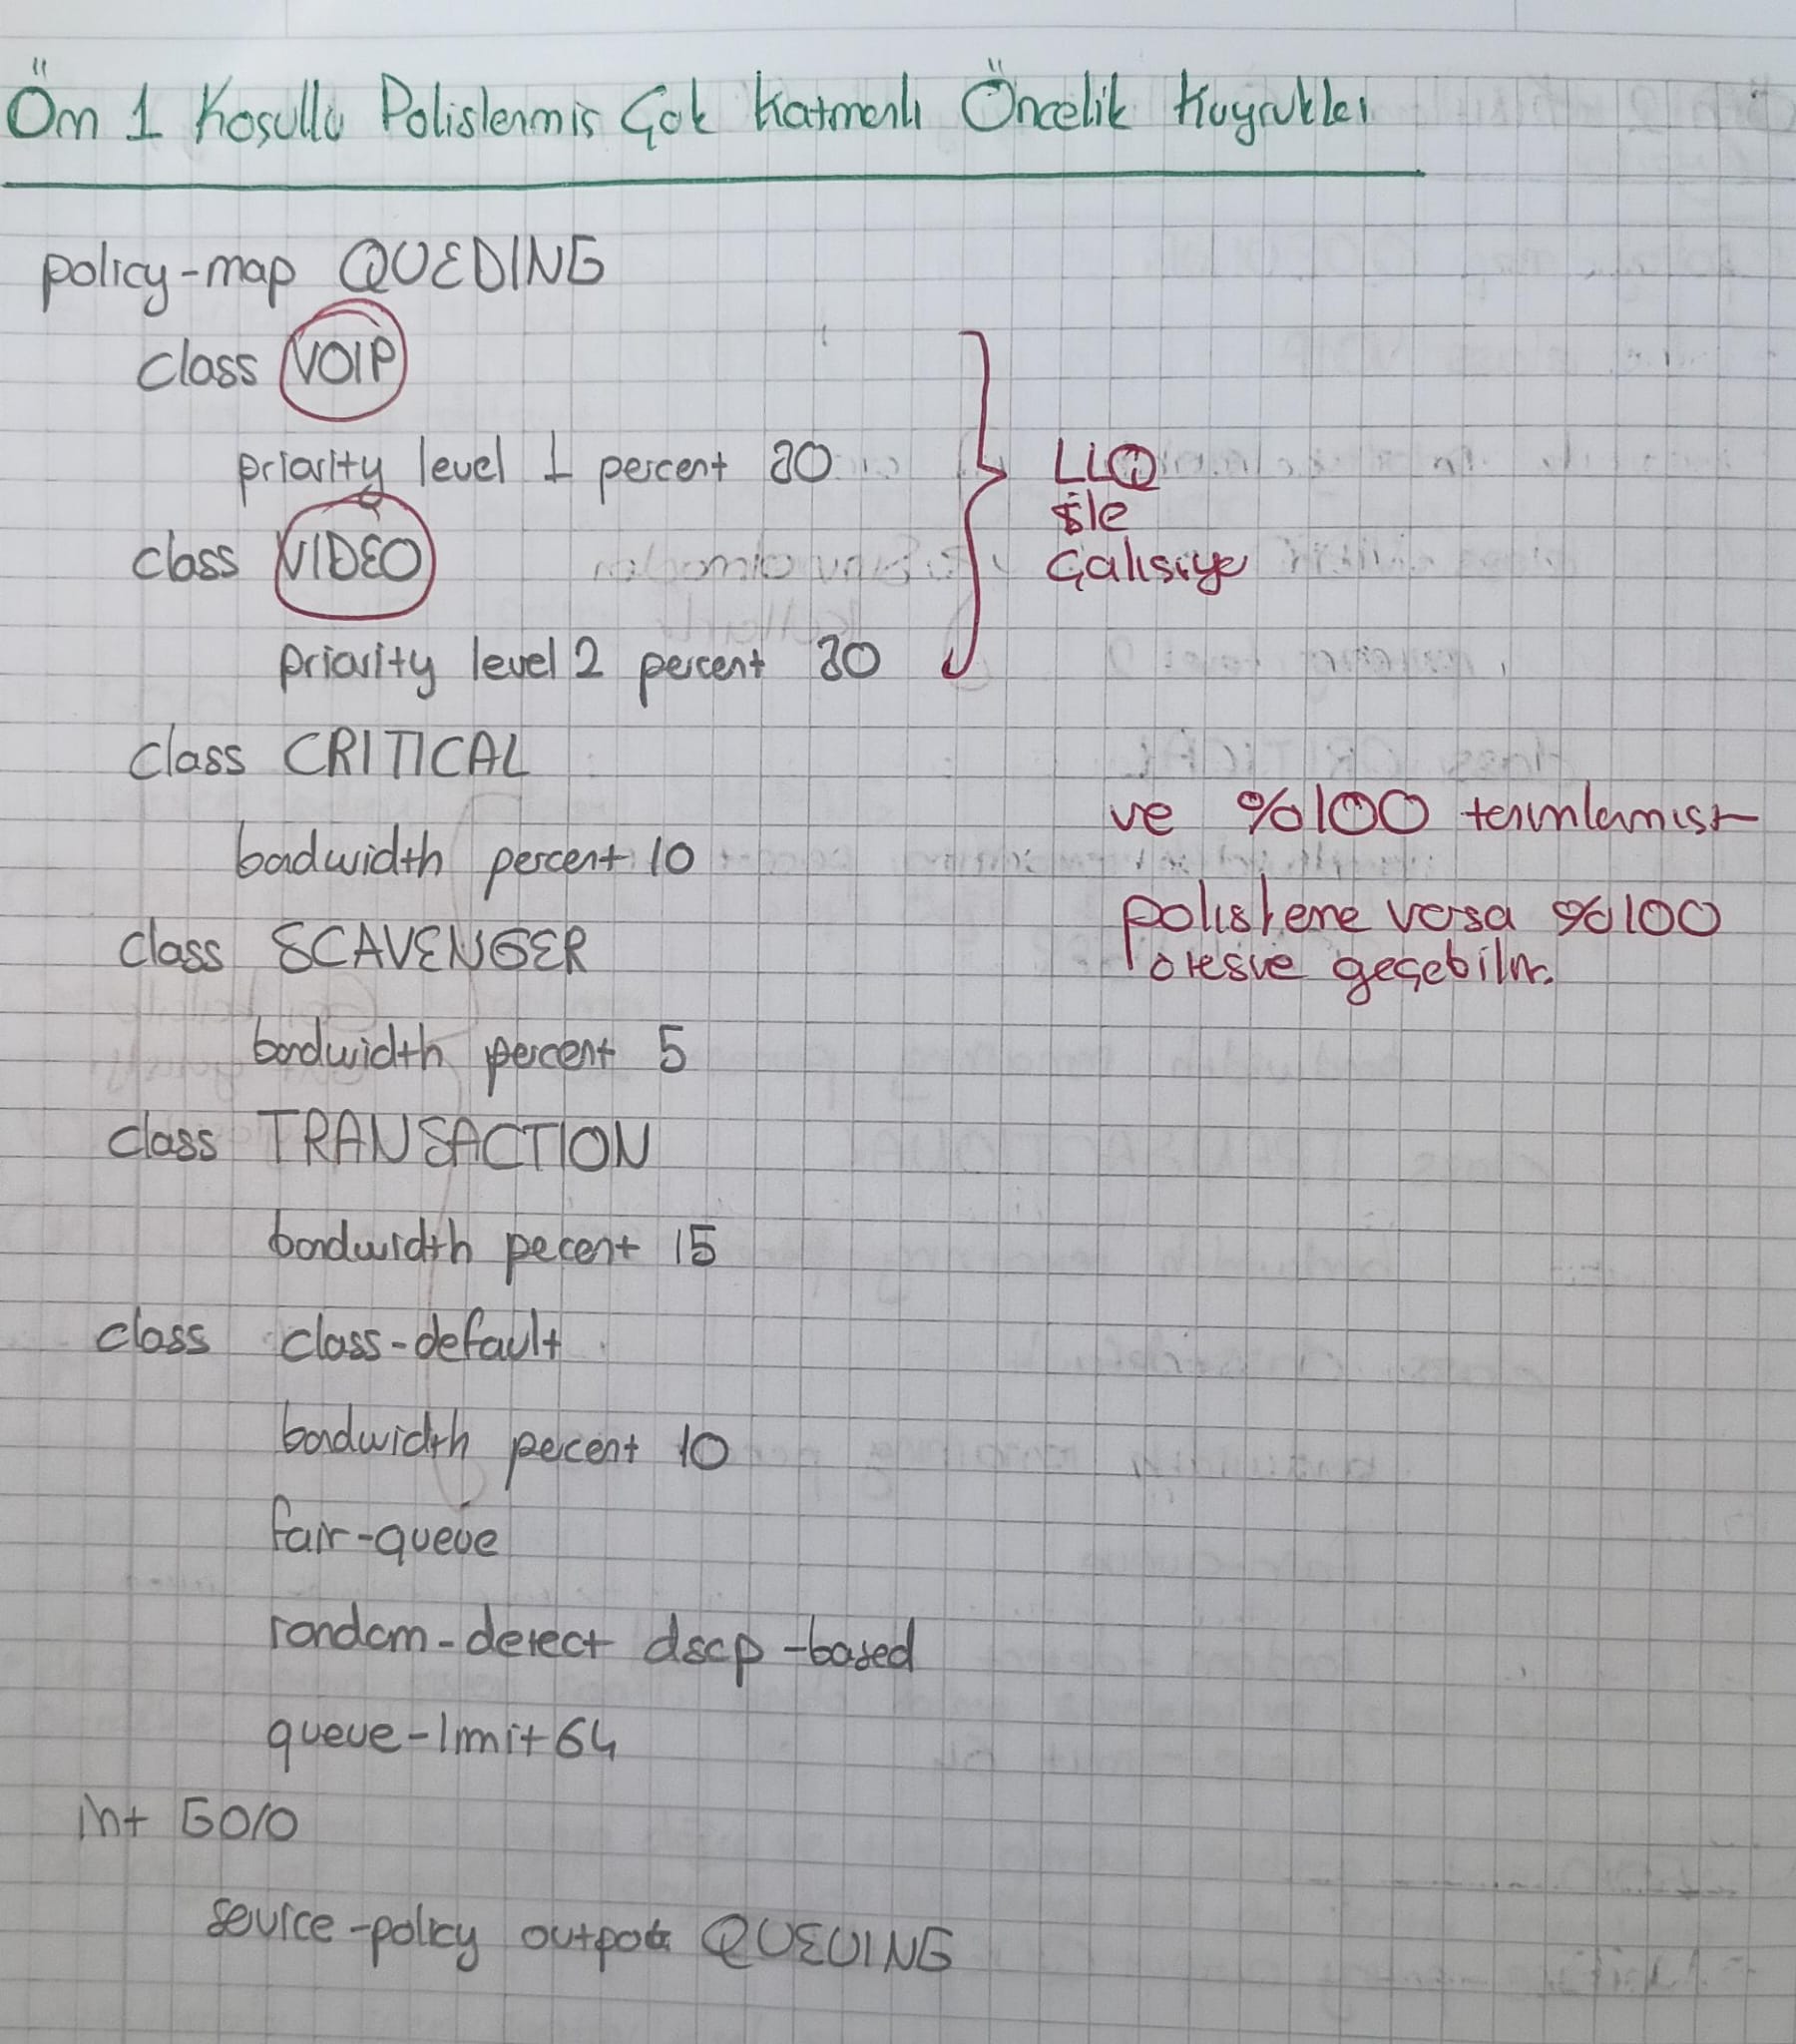 Örn 1 Koşullu Polislenmiş Çok Katmanlı Öncelik Kuyrukları
policy-map QUEUING
class VOIP
priority level 1 percent 30
class VIDEO
priority level 2 percent 30
class CRITICAL
badwidth percent 10
class SCAVENGER
bandwidth percent 5
class TRANSACTION
bandwidth pecent 15
class class-default
bandwidth percent 10
fair-queue
random-detect dscp-based
queue-limit 64
int G0/0
service-policy output QUEUING
LLQ
ile
Çalışıyo
ve %100 tanımlamıştır
polisleme varsa %100
ötesine geçebilir.